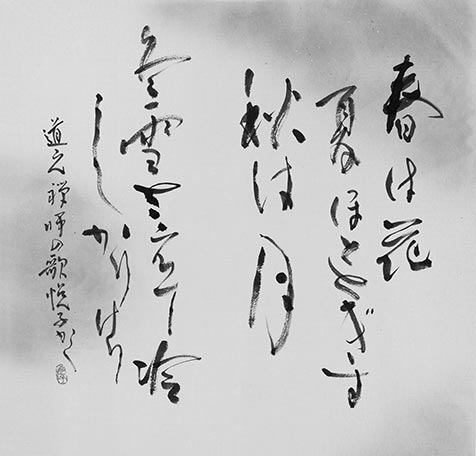 春は花
夏ほとゝぎす
秋は月
冬雪さえて冷
しかりけり
道元禅師の歌悦子かく